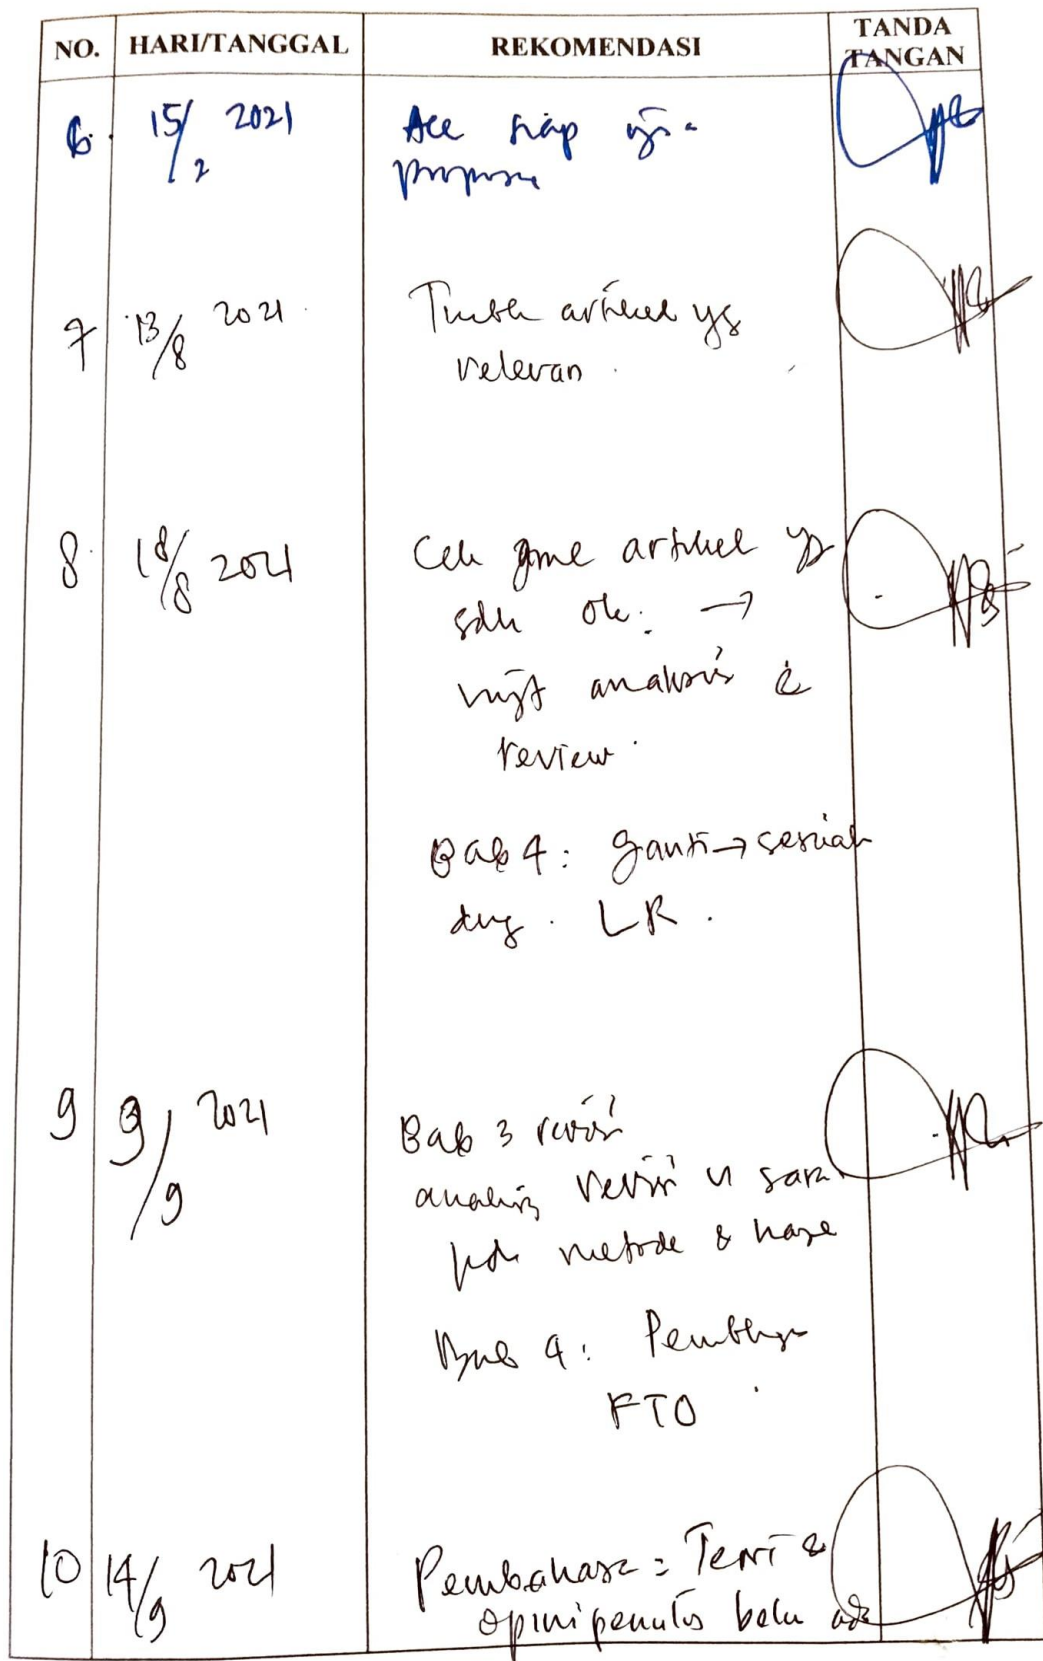 NO. HARI/TANGGAL REKOMENDASI TANDA TANGAN
6. 15/2 2021 Acc siap uji
7 13/8 2021 artikel yg
relevan
8. 18/8 2021 Cek artikel yg
sdh ok. →
analisis &
review.
Bab 4: ganti → sesuai
dng. LR.
9 9/9 2021 Bab 3 revisi
analisis revisi
metode & hasil
Bab 4:
FTO
10 14/9 2021 Pembahasan = Teori &
opini penulis belum ada